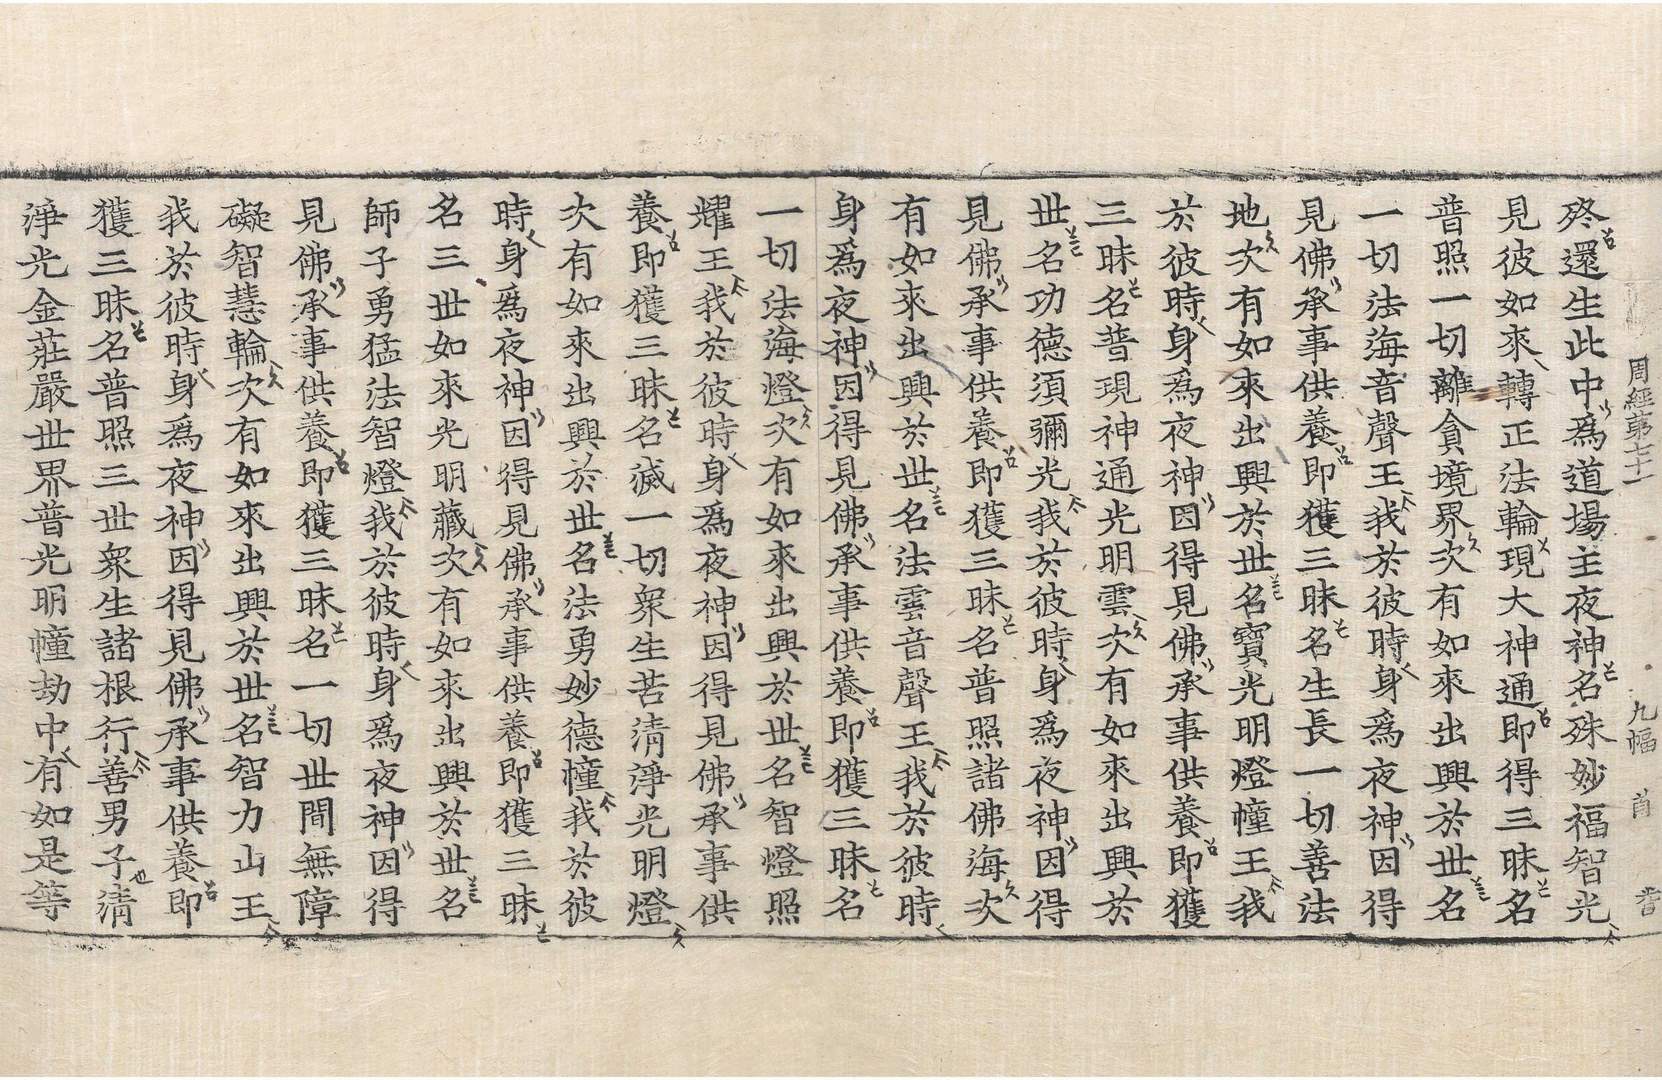 周經第七十一 九幅 首
終還生此中爲道場主夜神名殊妙福智光
見彼如來轉正法輪現大神通即得三昧名
普照一切離貪境界次有如來出興於世名
一切法海音聲王我於彼時身爲夜神因得
見佛承事供養即獲三昧名生長一切善法
地次有如來出興於世名寶光明燈幢王我
於彼時身爲夜神因得見佛承事供養即獲
三昧名普現神通光明雲次有如來出興於
世名功德須彌光我於彼時身爲夜神因得
見佛承事供養即獲三昧名普照諸佛海次
有如來出興於世名法雲音聲王我於彼時
身爲夜神因得見佛承事供養即獲三昧名
一切法海燈次有如來出興於世名智燈照
耀王我於彼時身爲夜神因得見佛承事供
養即獲三昧名滅一切衆生苦清淨光明燈
次有如來出興於世名法勇妙德幢我於彼
時身爲夜神因得見佛承事供養即獲三昧
名三世如來光明藏次有如來出興於世名
師子勇猛法智燈我於彼時身爲夜神因得
見佛承事供養即獲三昧名一切世間無障
礙智慧輪次有如來出興於世名智力山王
我於彼時身爲夜神因得見佛承事供養即
獲三昧名普照三世衆生諸根行善男子清
淨光金莊嚴世界普光明幢劫中有如是等